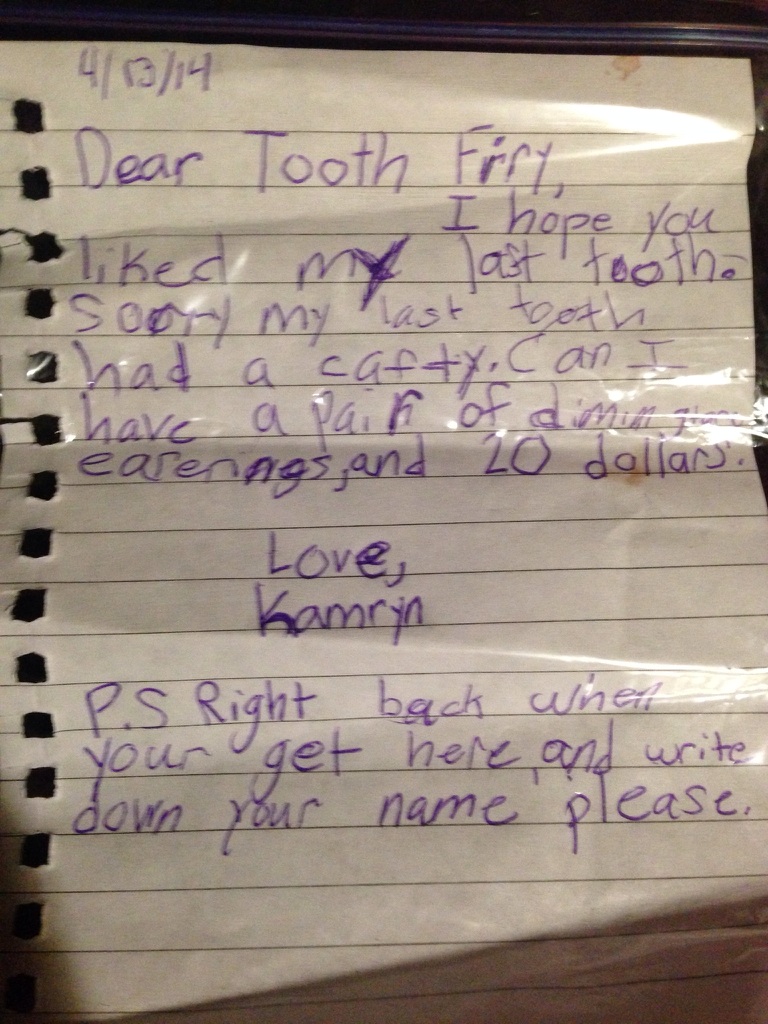 4/13/14
Dear Tooth Frry,
I hope you
liked my last tooth.
Soory my last tooth
had a cafty. Can I
have a pair of
earerings, and 20 dollars.
Love,
Kamryn
P.S Right back when
your get here, and write
down your name please.